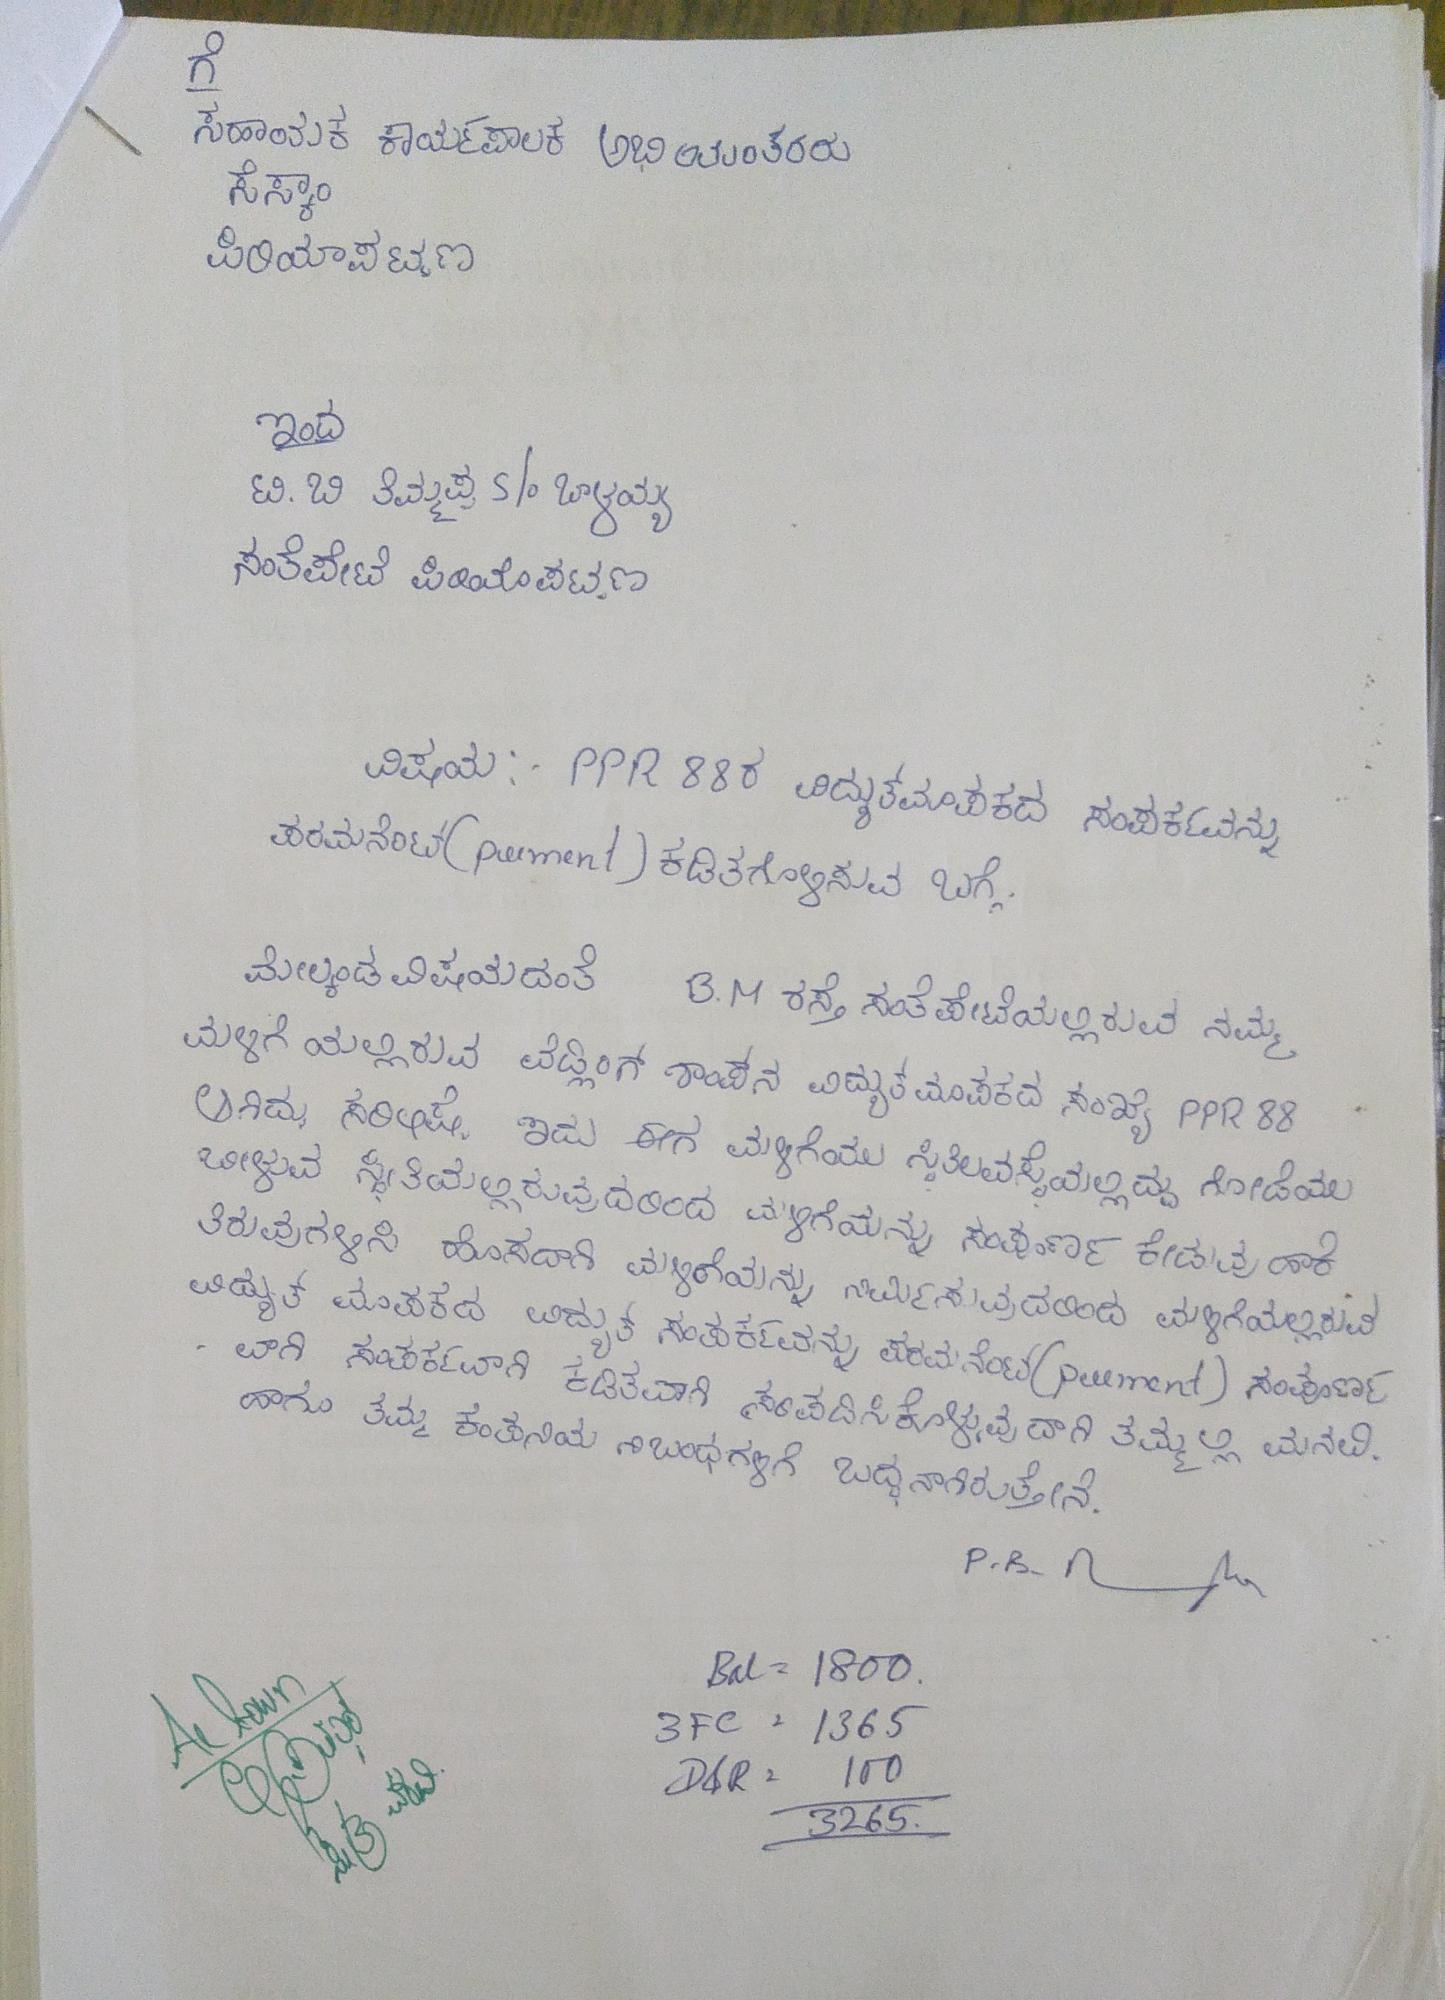 ಗೆ
ಸಹಾಯಕ ಕಾರ್ಯಪಾಲಕ ಅಭಿಯಂತರರು
ಸೆಸ್ಕಾಂ
ಪಿರಿಯಾಪಟ್ಟಣ
ಇಂದ
ಟಿ.ಬಿ ತಿಮ್ಮಪ್ಪ S/o ಬಾಳಯ್ಯ
ಸಂತೆಪೇಟೆ ಪಿರಿಯಾಪಟ್ಟಣ
ವಿಷಯ:- PPR 88ರ ವಿದ್ಯುತ್‌ಮಾಪಕದ ಸಂಪರ್ಕವನ್ನು
ಪರಮನೆಂಟ್(perment) ಕಡಿತಗೊಳಿಸುವ ಬಗ್ಗೆ.
ಮೇಲ್ಕಂಡ ವಿಷಯದಂತೆ B.M ರಸ್ತೆ ಸಂತೆಪೇಟೆಯಲ್ಲಿರುವ ನಮ್ಮ
ಮಳಿಗೆಯಲ್ಲಿರುವ ವೆಲ್ಡಿಂಗ್ ಶಾಪಿನ ವಿದ್ಯುತ್ ಮಾಪಕದ ಸಂಖ್ಯೆ PPR 88
ಆಗಿದ್ದು ಸರಿಯಷ್ಟೇ. ಇದು ಈಗ ಮಳಿಗೆಯು ಗೋಡೆಯು
ಬೀಳುವ ಸ್ಥಿತಿಯಲ್ಲಿರುವುದರಿಂದ ಮಳಿಗೆಯನ್ನು ಸಂಪೂರ್ಣ ಕೇಡುವು ಹಾಕಿ
ತೆರುವುಗಳಿಸಿ ಹೊಸದಾಗಿ ಮಳಿಗೆಯನ್ನು ನಿರ್ಮಿಸುವುದರಿಂದ ಮಳಿಗೆಯಲ್ಲಿರುವ
ವಿದ್ಯುತ್ ಮಾಪಕದ ವಿದ್ಯುತ್ ಸಂಪರ್ಕವನ್ನು ಪರಮನೆಂಟ್(perment) ಸಂಪೂರ್ಣ
- ವಾಗಿ ಸಂಪರ್ಕವಾಗಿ ಕಡಿತವಾಗಿ ತಮ್ಮಲ್ಲಿ ಮನವಿ.
ಹಾಗೂ ತಮ್ಮ ಕಂಪನಿಯ ನಿಬಂಧಗಳಿಗೆ ಬದ್ಧನಾಗಿರುತ್ತೇನೆ.
P.B.
Bal = 1800.
3FC = 1365
D&R = 100
3265.